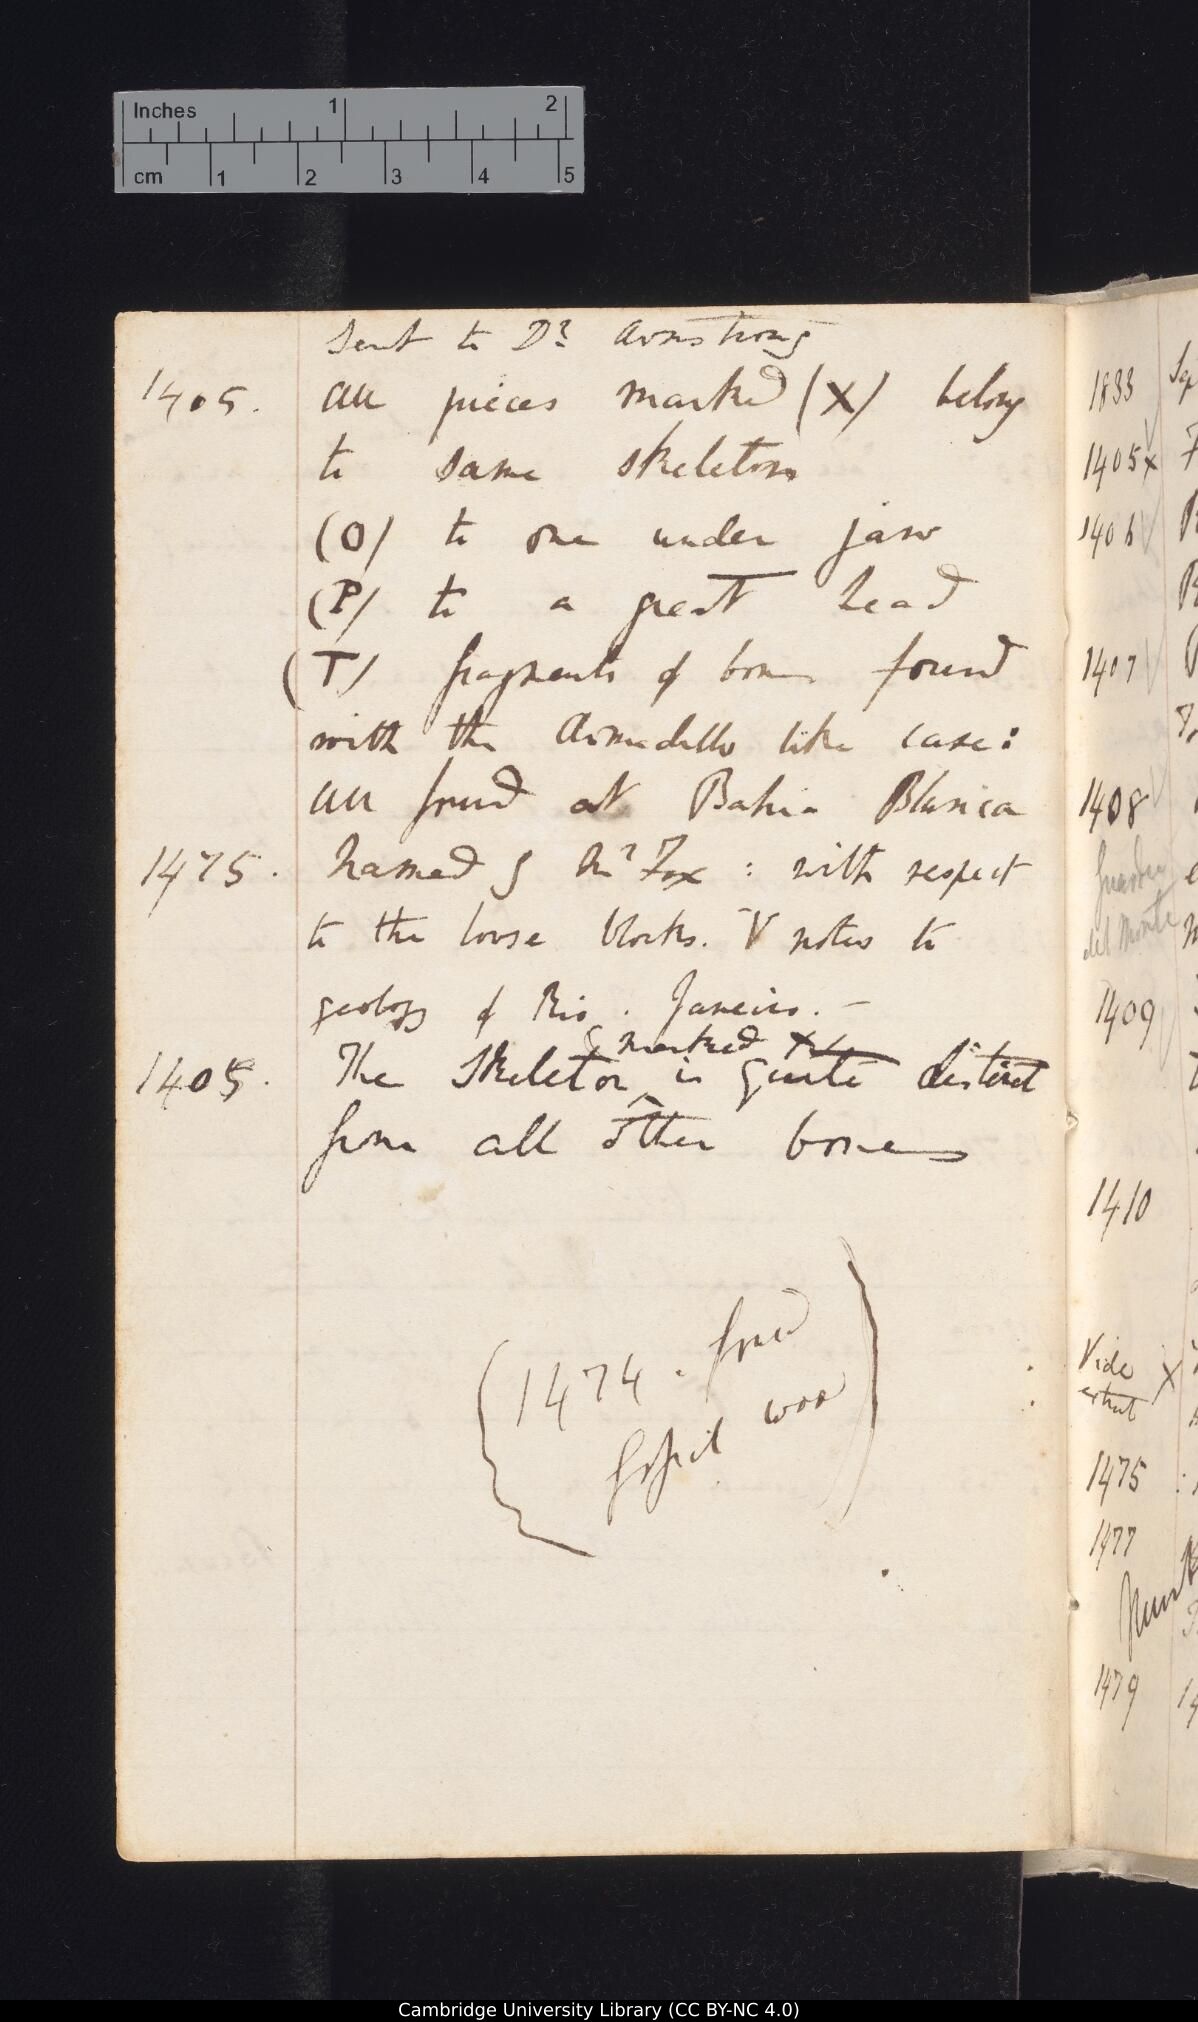 Inches 1 2
cm 1 2 3 4 5
Sent to Dr Armstrong
1405. All pieces marked (X) belong
to same skeleton
(O) to one under jaw
(P) to a great head
(T) fragments of bones found
with the Armadillo like case:
all found at Bahia Blanca
1475. Named by Mr Fox: with respect
to the loose blocks. V notes to
geology of Rio. Janeiro. —
marked X
1405. The Skeleton ^ is quite distinct
from all other bones
(1474. found
fossil wood)
1833
1405x
1406
1407
1408
Guardia
del Monte
1409
1410
Vide X
1475
1477
1479
Cambridge University Library (CC BY-NC 4.0)